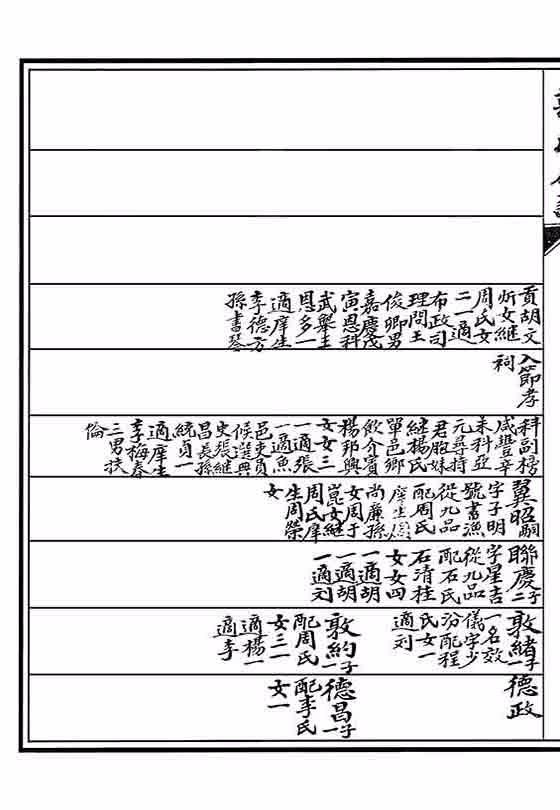 貢胡文
炘女繼
周氏女
二一適
布政司
理問王
俊卿男
嘉慶戊
寅恩科
武舉王
恩多一
適庠生
李德方
孫書琴
入節孝
祠
科副榜
咸豐辛
未科亞
元尋持
君胞妹
繼楊氏
單邑鄉
飲介賓
楊邦興
女女三
一適張
一適魚
邑吏員
候選典
史張繼
昌長孫
統貞一
適庠生
李梅春
三男扶
倫
翼昭嗣
字子明
號書漁
從九品
配周氏
庠生
尚廉孫
女周于
崑女繼
周氏庠
生周榮
女
聯慶子二
字星吉
從九品
配石氏
石清桂
女女四
一適胡
一適胡
一適刘
敦緒子一
一名效
儀字少
汾配程
氏女一
適刘
敦約子一
配周氏
女三一
適楊一
適李
德政
德昌子一
配李氏
女一